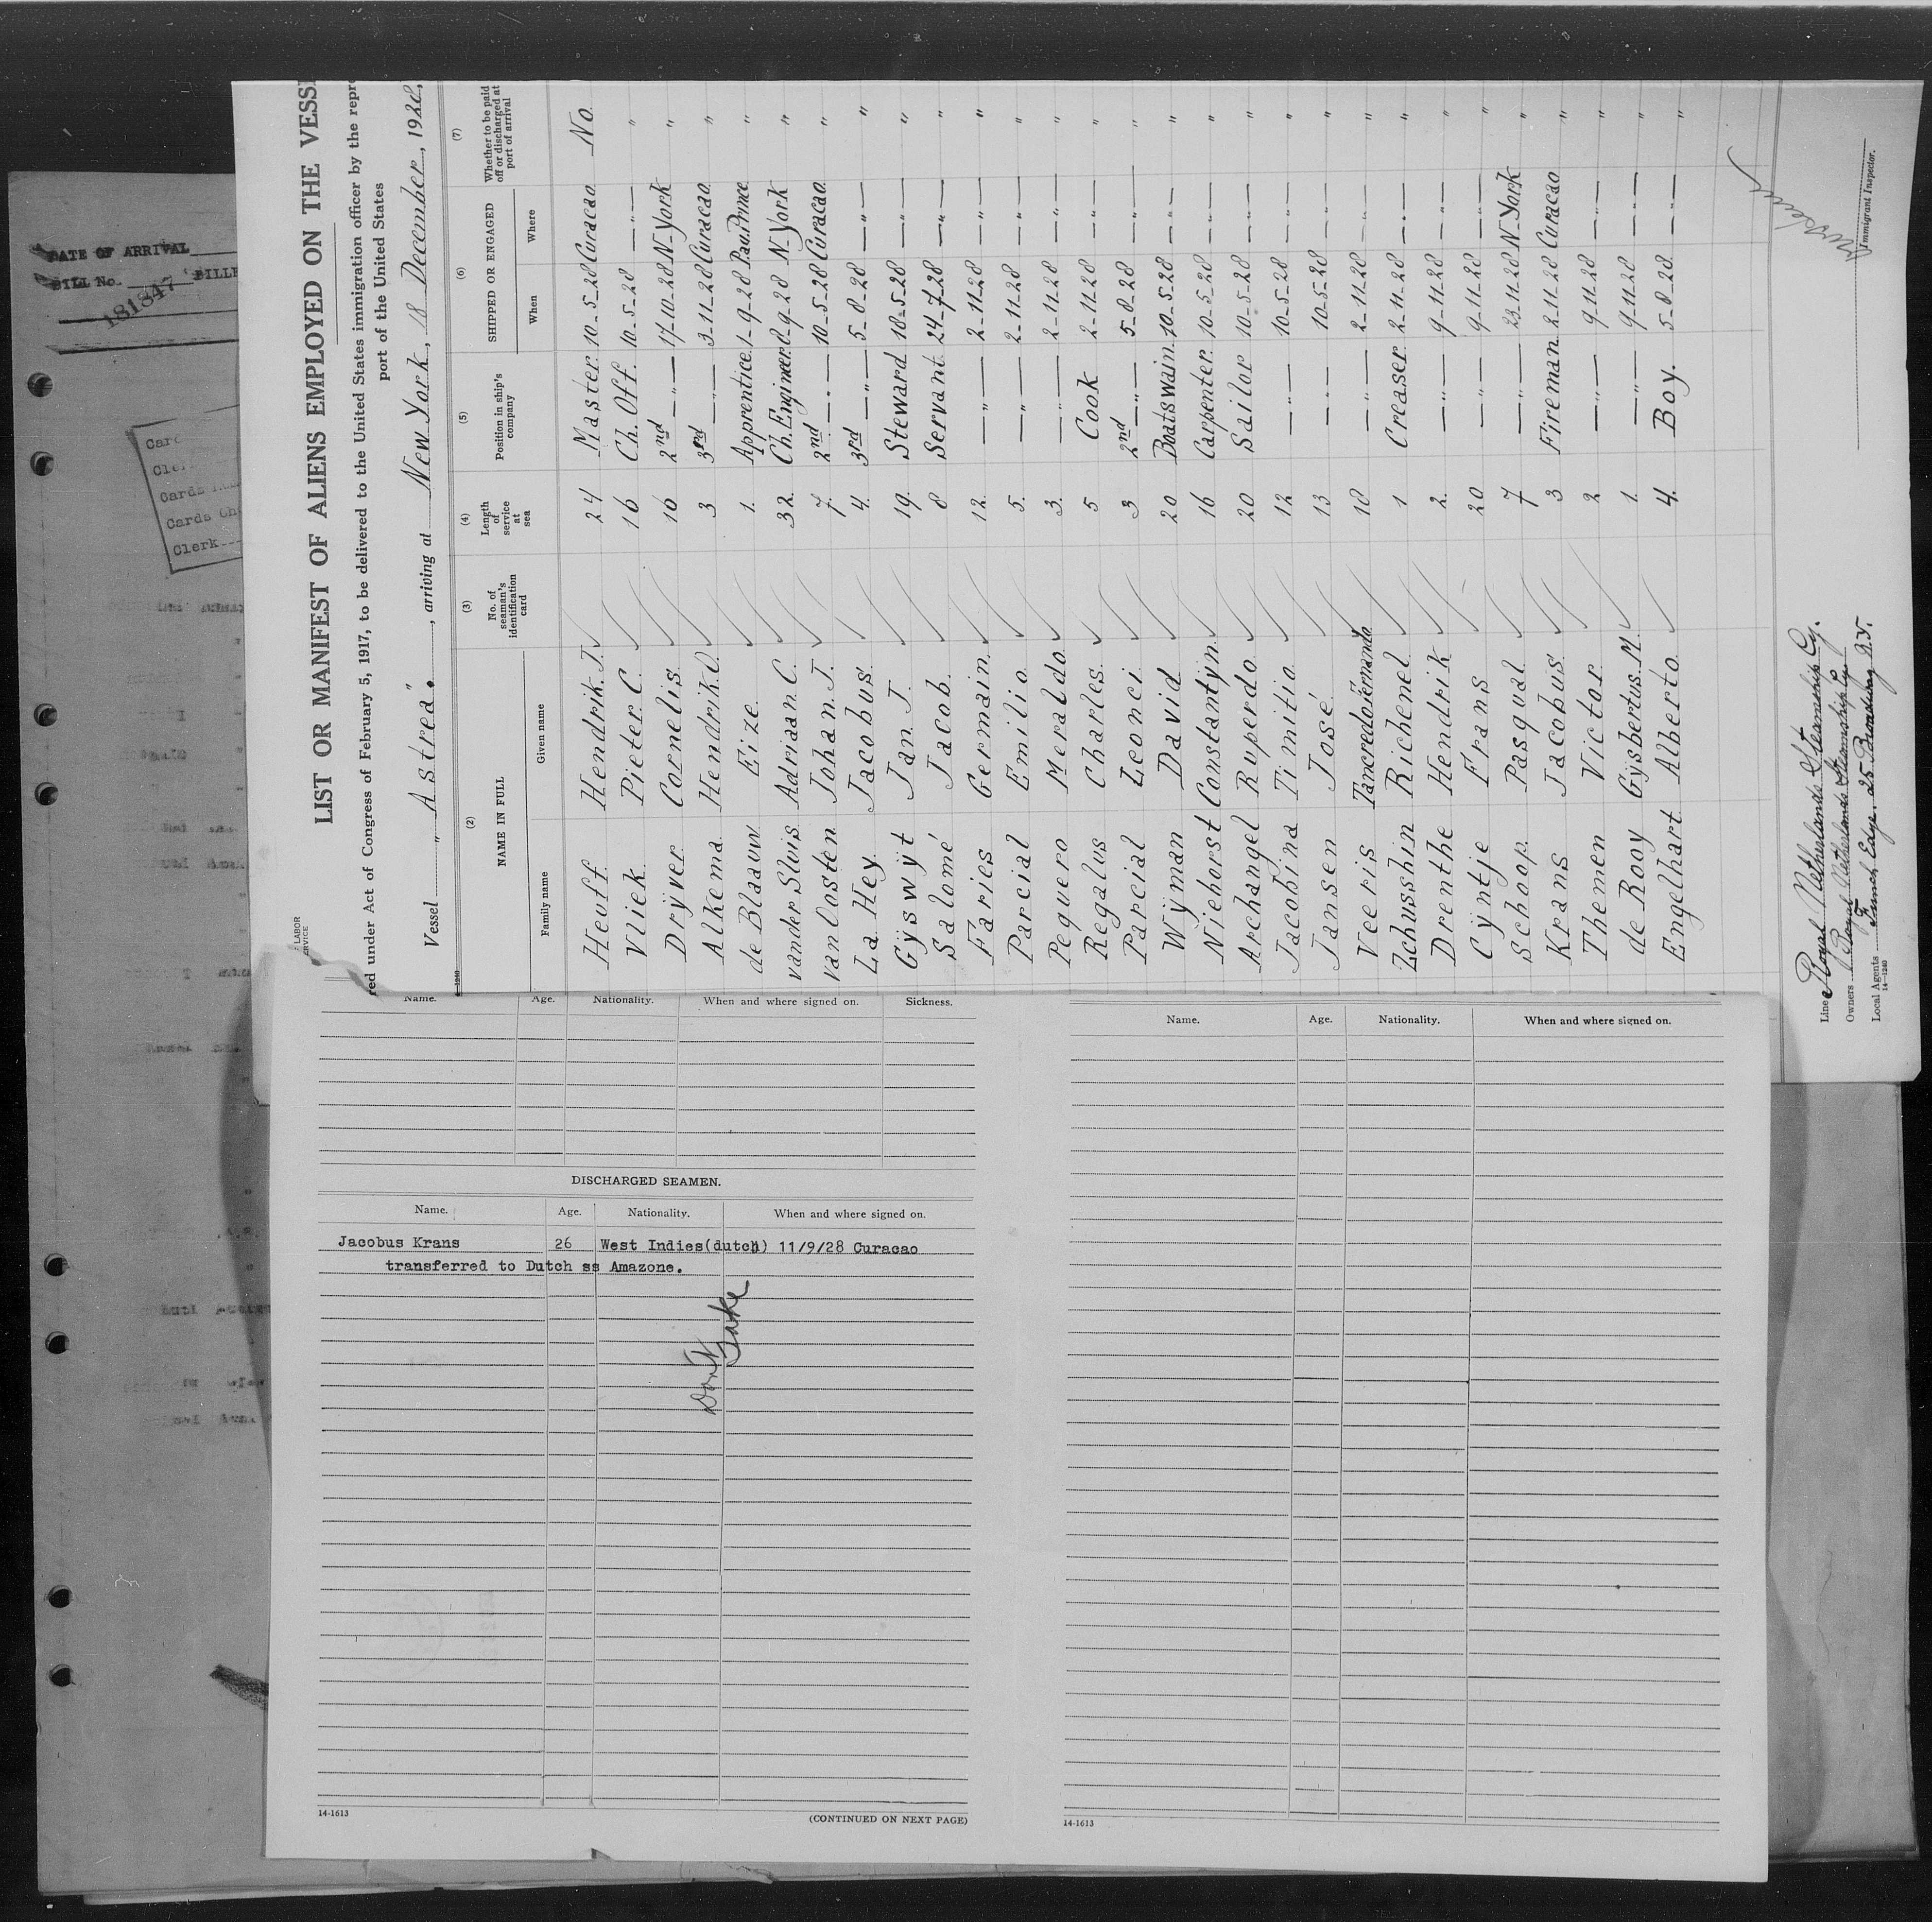 DATE OF ARRIVAL
BILL No. 181847
Clerk
LABOR
LIST OR MANIFEST OF ALIENS EMPLOYED ON THE VESSE
red under Act of Congress of February 5, 1917, to be delivered to the United States immigration officer by the repre
port of the United States
Vessel "Astrea", arriving at New York, 18 December, 1928,
(2) (3) (4) (5) (6) (7)
NAME IN FULL
Family name Given name
No. of seaman's identification card
Length of service at sea
Position in ship's company
SHIPPED OR ENGAGED
When Where
Whether to be paid off or discharged at port of arrival
Heuff Hendrik. J. 24 Master 10-5-28 Curacao No
Vliek Pieter. C. 16 Ch. Off. 10-5-28 —„— "
Drÿver Cornelis 16 2nd —„— 17-10-28 N-York "
Alkema Hendrik. O. 3 3rd —„— 3-11-28 Curacao "
de Blaauw Eize 1. Apprentice 1-9-28 "
van der Sluis Adriaan. C. 32 Ch. Engineer 8-9-28 N-York "
van Oosten Johan. J. 7. 2nd —„— 10-5-28 Curacao "
La Hey Jacobus 4. 3rd —„— 5-8-28 —„— "
Gÿswÿt Jan J. 19. Steward 18-5-28 —„— "
Salomé Jacob. 8 Servant 24-7-28 —„— "
Faries Germain. 12. —„— 2-11-28 —„— "
Parcial Emilio 5. —„— 2-11-28 —„— "
Peguero Meraldo 3. —„— 2-11-28 —„— "
Regalus Charles 5 Cook 2-11-28 —„— "
Parcial Leonci 3 2nd —„— 5-8-28 —„— "
Wÿman David 20 Boatswain 10-5-28 —„— "
Niehorst Constantÿn 16 Carpenter 10-5-28 —„— "
Archangel Ruperdo 20 Sailor 10-5-28 —„— "
Jacobina Timitio 12 —„— 10-5-28 —„— "
Jansen José 13 —„— 10-5-28 —„— "
Veeris Tancredo Fernando 18 —„— 2-11-28 —„— "
Zchusshin Richenel 1 Greaser 2-11-28 —„— "
Drenthe Hendrik 2. —„— 9-11-28 —„— "
Cÿntje Frans 20 —„— 9-11-28 —„— "
Schoop Pasqual 7 —„— 23-11-28 N-York "
Krans Jacobus 3 Fireman 2-11-28 Curacao "
Themen Victor 2 —„— 9-11-28 —„— "
de Rooy Gÿsbertus. M. 1. —„— 9-11-28 —„— "
Engelhart Alberto 4. Boy. 5-8-28 —„— "
Line Royal Netherlands Steamship Cy.
Owners Royal Netherlands Steamship Cy.
Local Agents Funch Edye. 25 Broadway N.Y.
14-1240
Immigrant Inspector.
Name. Age. Nationality. When and where signed on. Sickness.
DISCHARGED SEAMEN.
Name. Age. Nationality. When and where signed on.
Jacobus Krans 26 West Indies(dutch) 11/9/28 Curacao
transferred to Dutch ss Amazone.
Don't Take
14-1613
(CONTINUED ON NEXT PAGE)
Name. Age. Nationality. When and where signed on.
14-1613